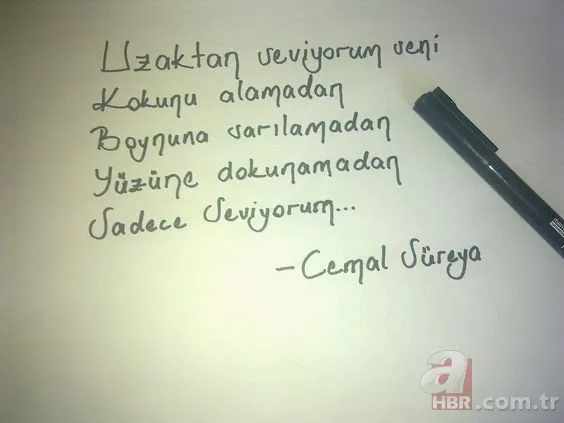 Uzaktan seviyorum seni
Kokunu alamadan
Boynuna sarılamadan
Yüzüne dokunamadan
Sadece Seviyorum...
- Cemal Süreya
a
HBR.com.tr